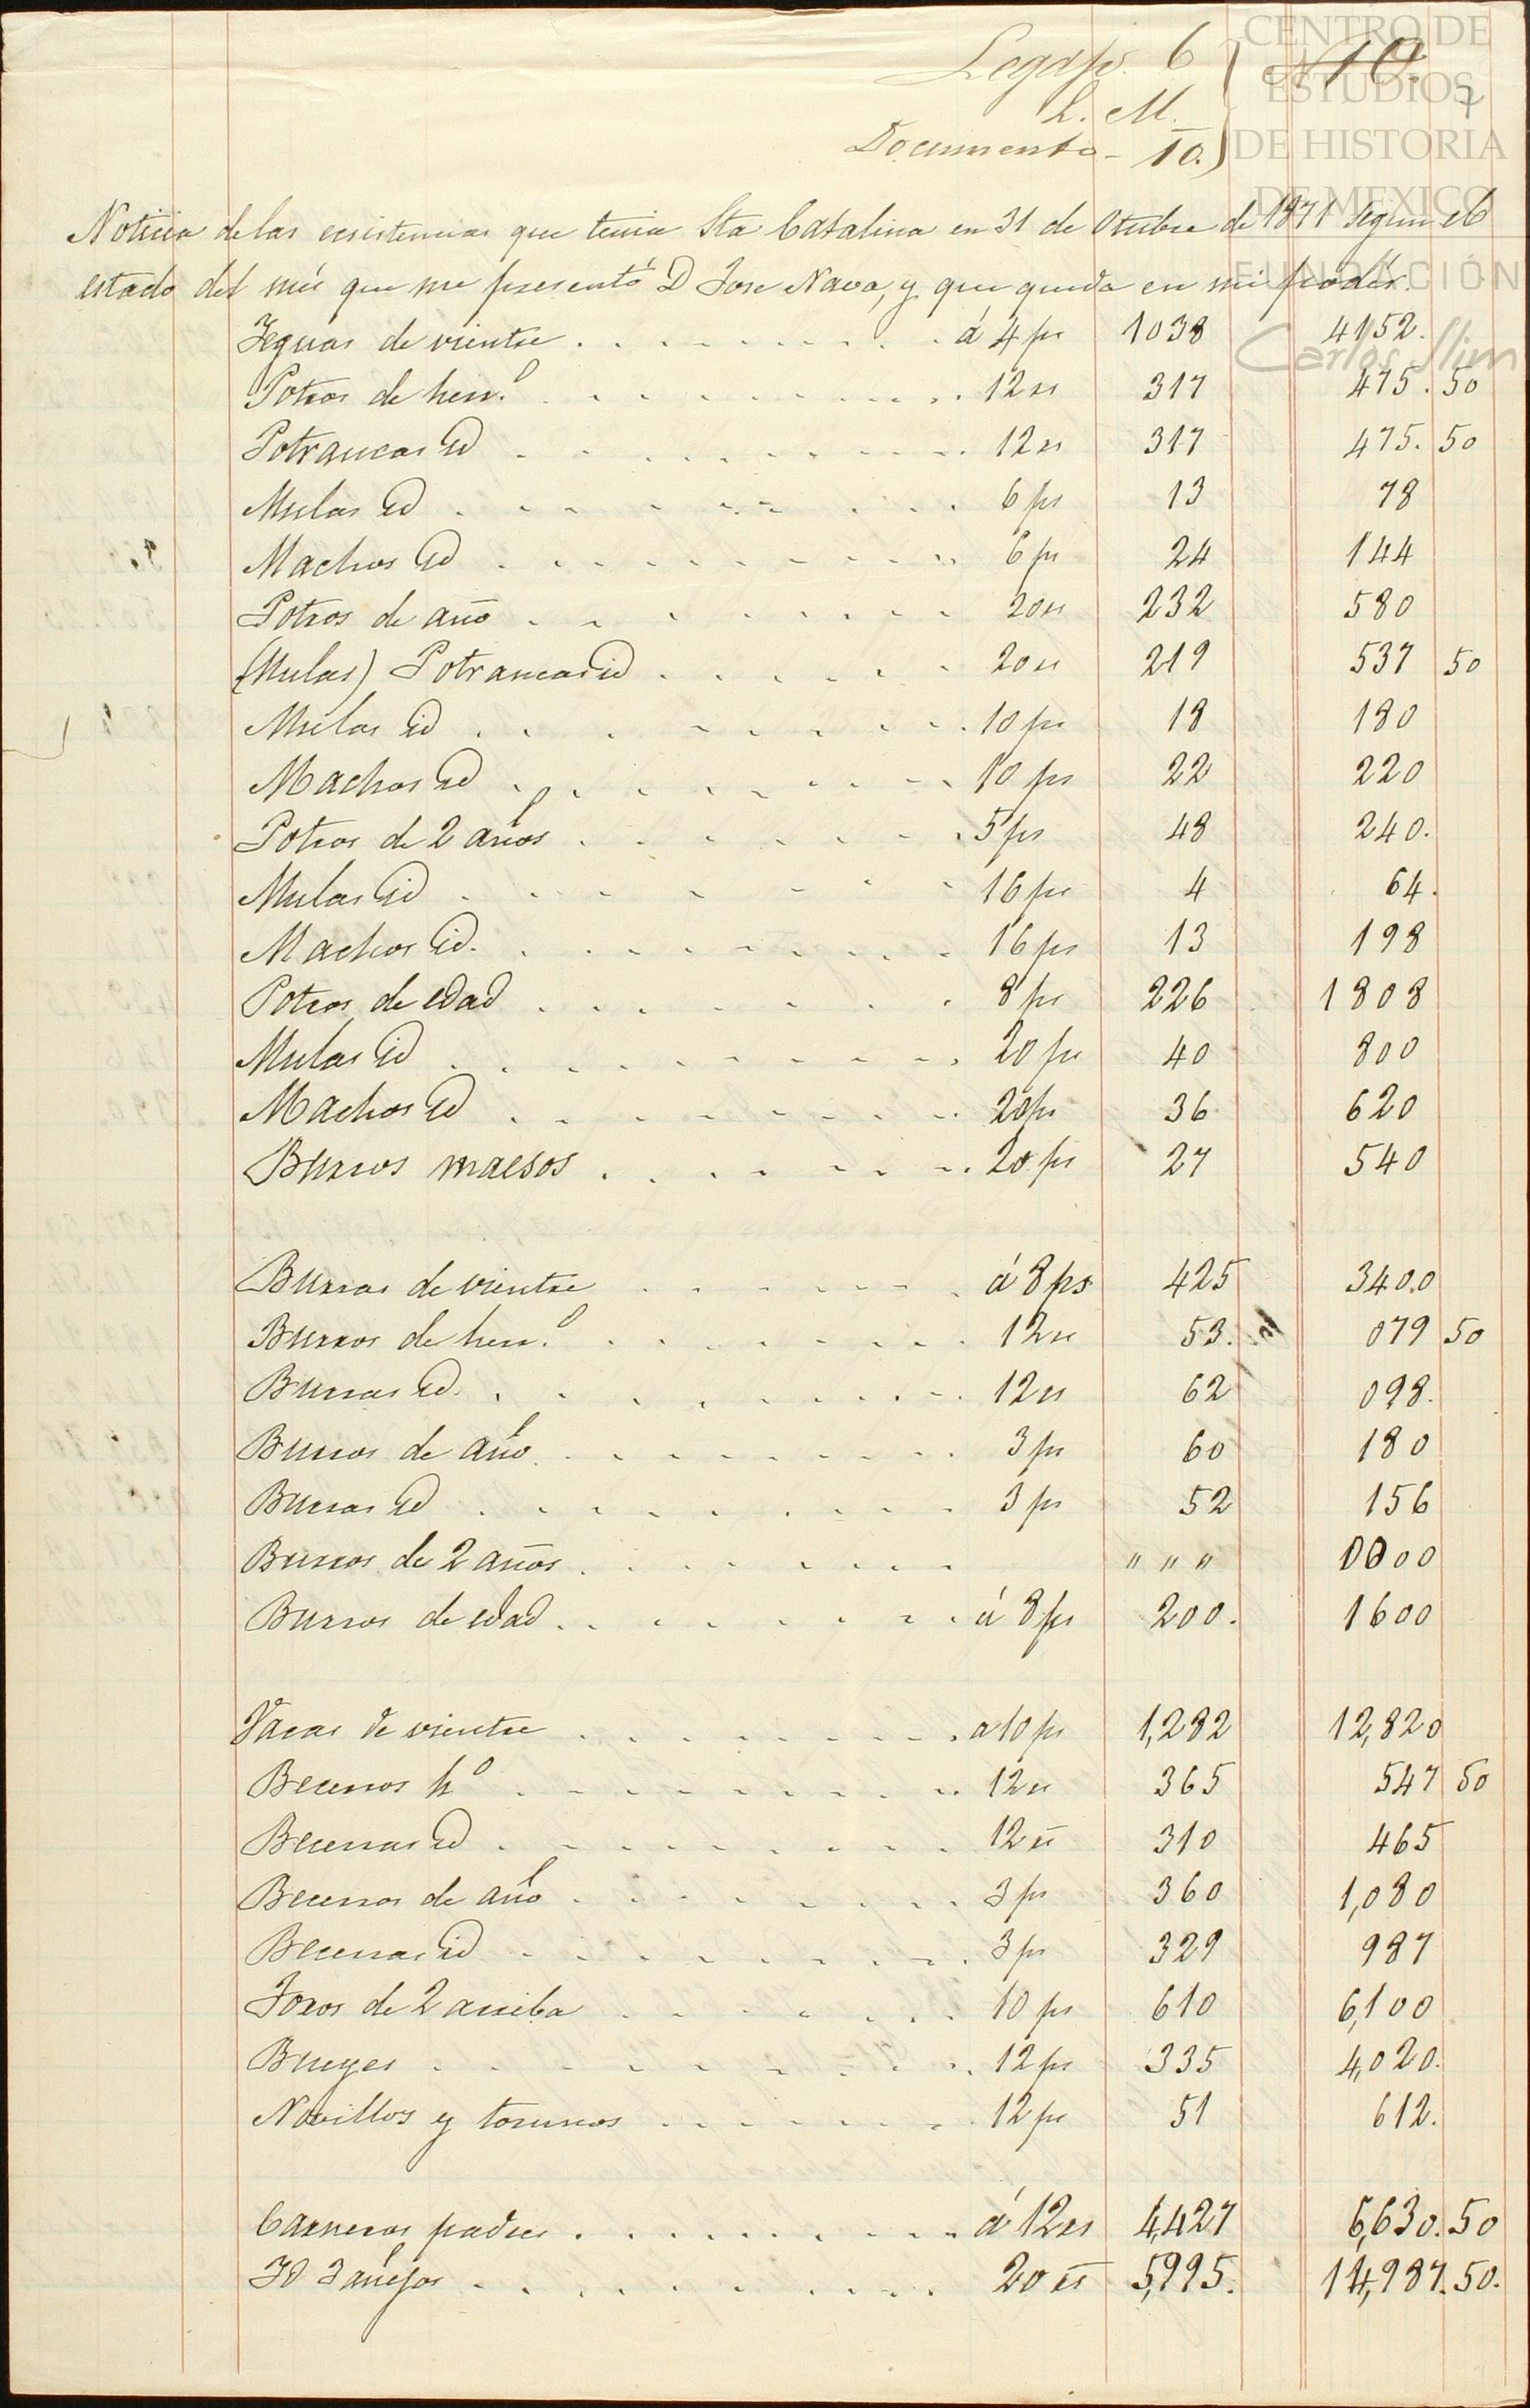 CENTRO DE
ESTUDIOS
DE HISTORIA
DE MEXICO
FUNDACIÓN
Carlos Slim
Legajo. 6
L. M.
Documento - 10.)
Noticia de las ecsistencias que tenia Sta Catalina en 31 de Otubre de 1871 segun el
estado del mes que me presentó D Jose Nava, y que queda en mi poder.
Yeguas de vientre . . . . . . . . . . á 4 ps 1038 4152.
Potros de herr.o . . . . . . . . . . 12 rs 317 475. 50
Potrancas id . . . . . . . . . . 12 rs 317 475. 50
Mulas id . . . . . . . . . . 6 ps 13 78
Machos id . . . . . . . . . . 6 ps 24 144
Potros de año . . . . . . . . . 20 rs 232 580
(Mulas) Potrancas id . . . . . . 20 rs 219 537 50
Mulas id . . . . . . . . . . 10 ps 18 180
Machos id . . . . . . . . . . 10 ps 22 220
Potros de 2 años . . . . . . . . 5 ps 48 240.
Mulas id . . . . . . . . 16 ps 4 64.
Machos id. . . . . . . . . . 16 ps 13 198
Potros de edad . . . . . . . 8 ps 226 1808
Mulas id . . . . . . . . . . 20 ps 40 800
Machos id . . . . . . . . . . 20 ps 36 620
Burros maesos . . . . . . . . 20 ps 27 540
Burras de vientre . . . . . . . á 8 ps 425 3400
Burros de herr.o . . . . . . . . 12 rs 53. 079 50
Burras id. . . . . . . . . . . 12 rs 62 098.
Burros de año . . . . . . . . . . 3 ps 60 180
Burras id . . . . . . . . . 3 ps 52 156
Burros de 2 años . . . . . . . . " " " 0000
Burros de edad . . . . . . . . á 8 ps 200. 1600
Vacas de vientre . . . . . . . . . a 10 ps 1,282 12,820
Becerros ho . . . . . . . . . . 12 rs 365 547 50
Becerras id . . . . . . . . . 12 rs 310 465
Becerros de año . . . . . . . . . 3 ps 360 1,080
Becerras id . . . . . . . . . . 3 ps 329 987
Toros de 2 arriba . . . . . . . 10 ps 610 6,100
Bueyes . . . . . . . . . . 12 ps 335 4,020.
Novillos y torunos . . . . . . . . 12 ps 51 612.
Carneros padres . . . . . . . . . . á 12 rs 4,427 6,630. 50
Id 3 añejos . . . . . . . . . . 20 rs 5,995. 14,987. 50.